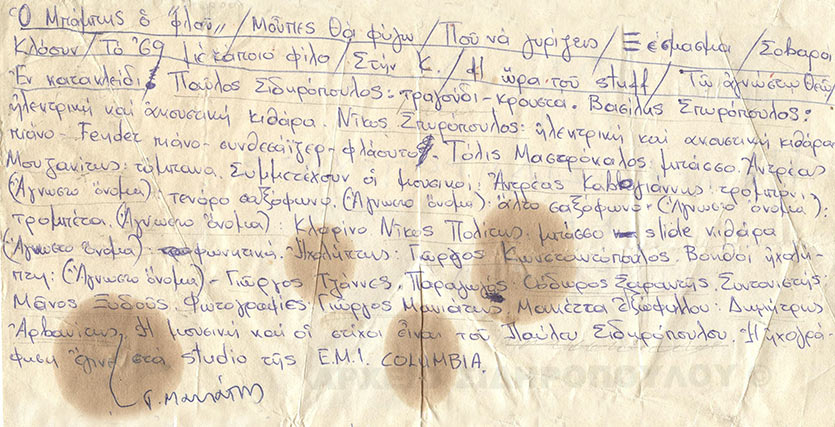 Ὁ Μπάμπης ὁ φλού,, / Μοῦπες Θά φύγω / Πού νά γυρίζεις / Ξέσπασμα / Σοβαροί
Κλόουν / Τό '69 μέ κάποιο φίλο / Στήν Κ. / Ἡ ὥρα τοῦ stuff / Τῷ ἀγνώστῳ Θεῷ /
Ἐν κατακλεῖδι. Παῦλος Σιδηρόπουλος: τραγούδι - κρουστά. Βασίλης Σπυρόπουλος:
ἠλεκτρική καί ἀκουστική κιθάρα. Νίκος Σπυρόπουλος: ἠλεκτρική καί ἀκουστική κιθάρα
πιάνο - Fender πιάνο - συνθεσάϊζερ - φλάουτο. Τόλης Μαστρόκαλος: μπάσσο. Ἀντρέας
Μουζακίτης: τύμπανα. Συμμετέχουν οἱ μουσικοί: Ἀντρέας
(Ἄγνωστο ὄνομα): τενόρο σαξόφωνο. (Ἄγνωστο ὄνομα): ἄλτο σαξόφωνο. (Ἄγνωστο ὄνομα):
τρομπέτα. (Ἄγνωστο ὄνομα): Κλαρίνο Νίκος Πολίτης: μπάσσο slide κιθάρα
(Ἄγνωστο ὄνομα): φωνητικά. Ἠχολήπτης: Γιῶργος Κωνσταντόπουλος. Βοηθοί ἠχολή-
πτη: (Ἄγνωστο ὄνομα) - Γιῶργος Τζάννες. Παραγωγός: Θόδωρος Σαραντής. Συντονιστής:
Μάνος Ξυδούς. Φωτογραφίες: Γιῶργος Μανιάτης. Μακέττα Ἐξωφύλλου: Δημήτρης
Ἀρβανίτης. Ἡ μουσική καί οἱ στίχοι εἶναι τοῦ Παύλου Σιδηρόπουλου. Ἡ ἠχογρά-
φηση ἔγινε στά studio τῆς E.M.I. COLUMBIA.
Γ. Μανιάτης
ΑΡΧΕΙΟ ΣΙΔΗΡΟΠΟΥΛΟΥ ©